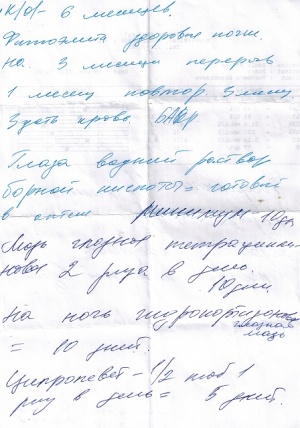 к/о/- 6 месяцев.
Фитоэлита здоровые почки.
на 3 месяца перерыв
1 месяц повтор 3 месяц
Сдать кровь. БАК
Глаза водний раствор
борной кислоты = готовый
в аптеке минимум 10 дн
Мазь глазная тетрациклин-
новая 2 раза в день.
10 дн.
На ночь гидрокортизоновая
глазная
мазь
= 10 дней.
Ципропевет - 1/2 таб 1
раз в день = 5 дней.